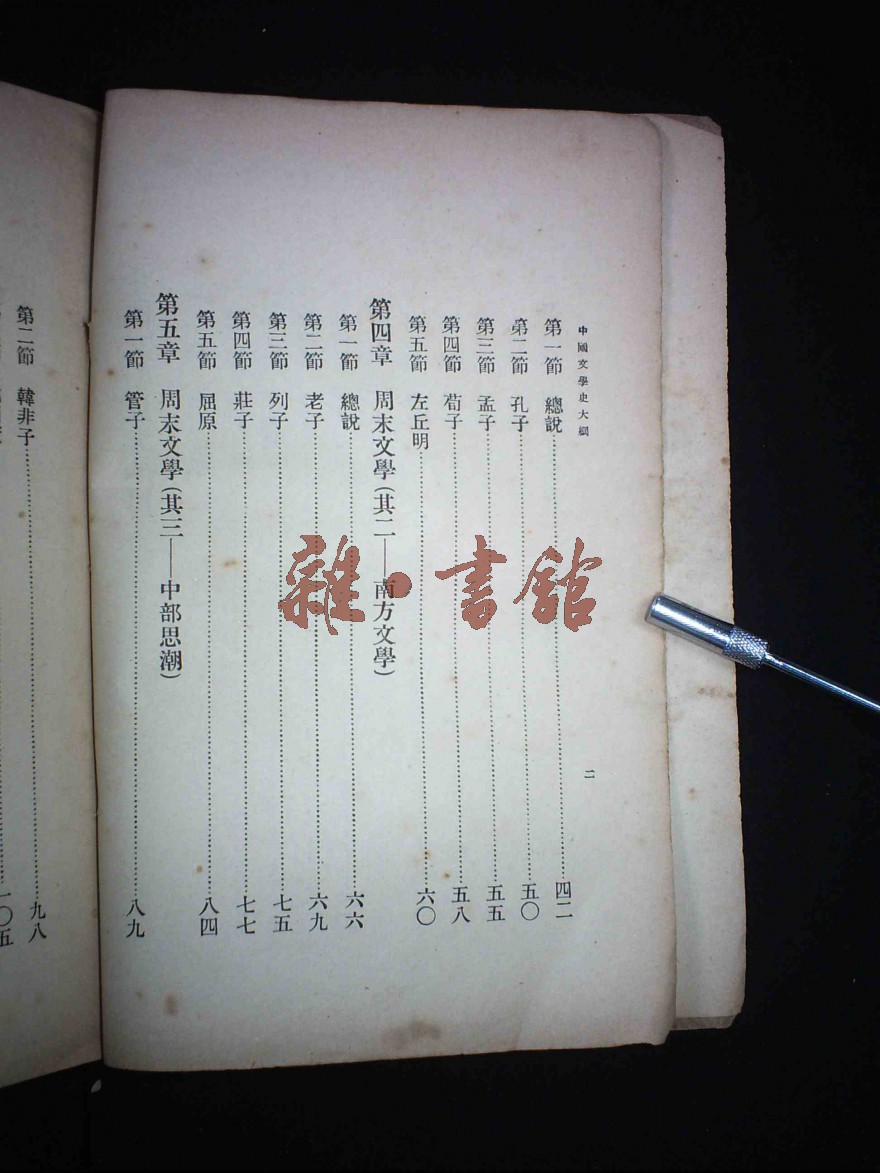 中國文學史大綱
二
第一節 總說……四二
第二節 孔子……五〇
第三節 孟子……五五
第四節 荀子……五八
第五節 左丘明……六〇
第四章 周末文學(其二——南方文學)
第一節 總說……六六
第二節 老子……六九
第三節 列子……七五
第四節 莊子……七七
第五節 屈原……八四
第五章 周末文學(其三——中部思潮)
第一節 管子……八九
第二節 韓非子……九八
一〇五
雜·書館